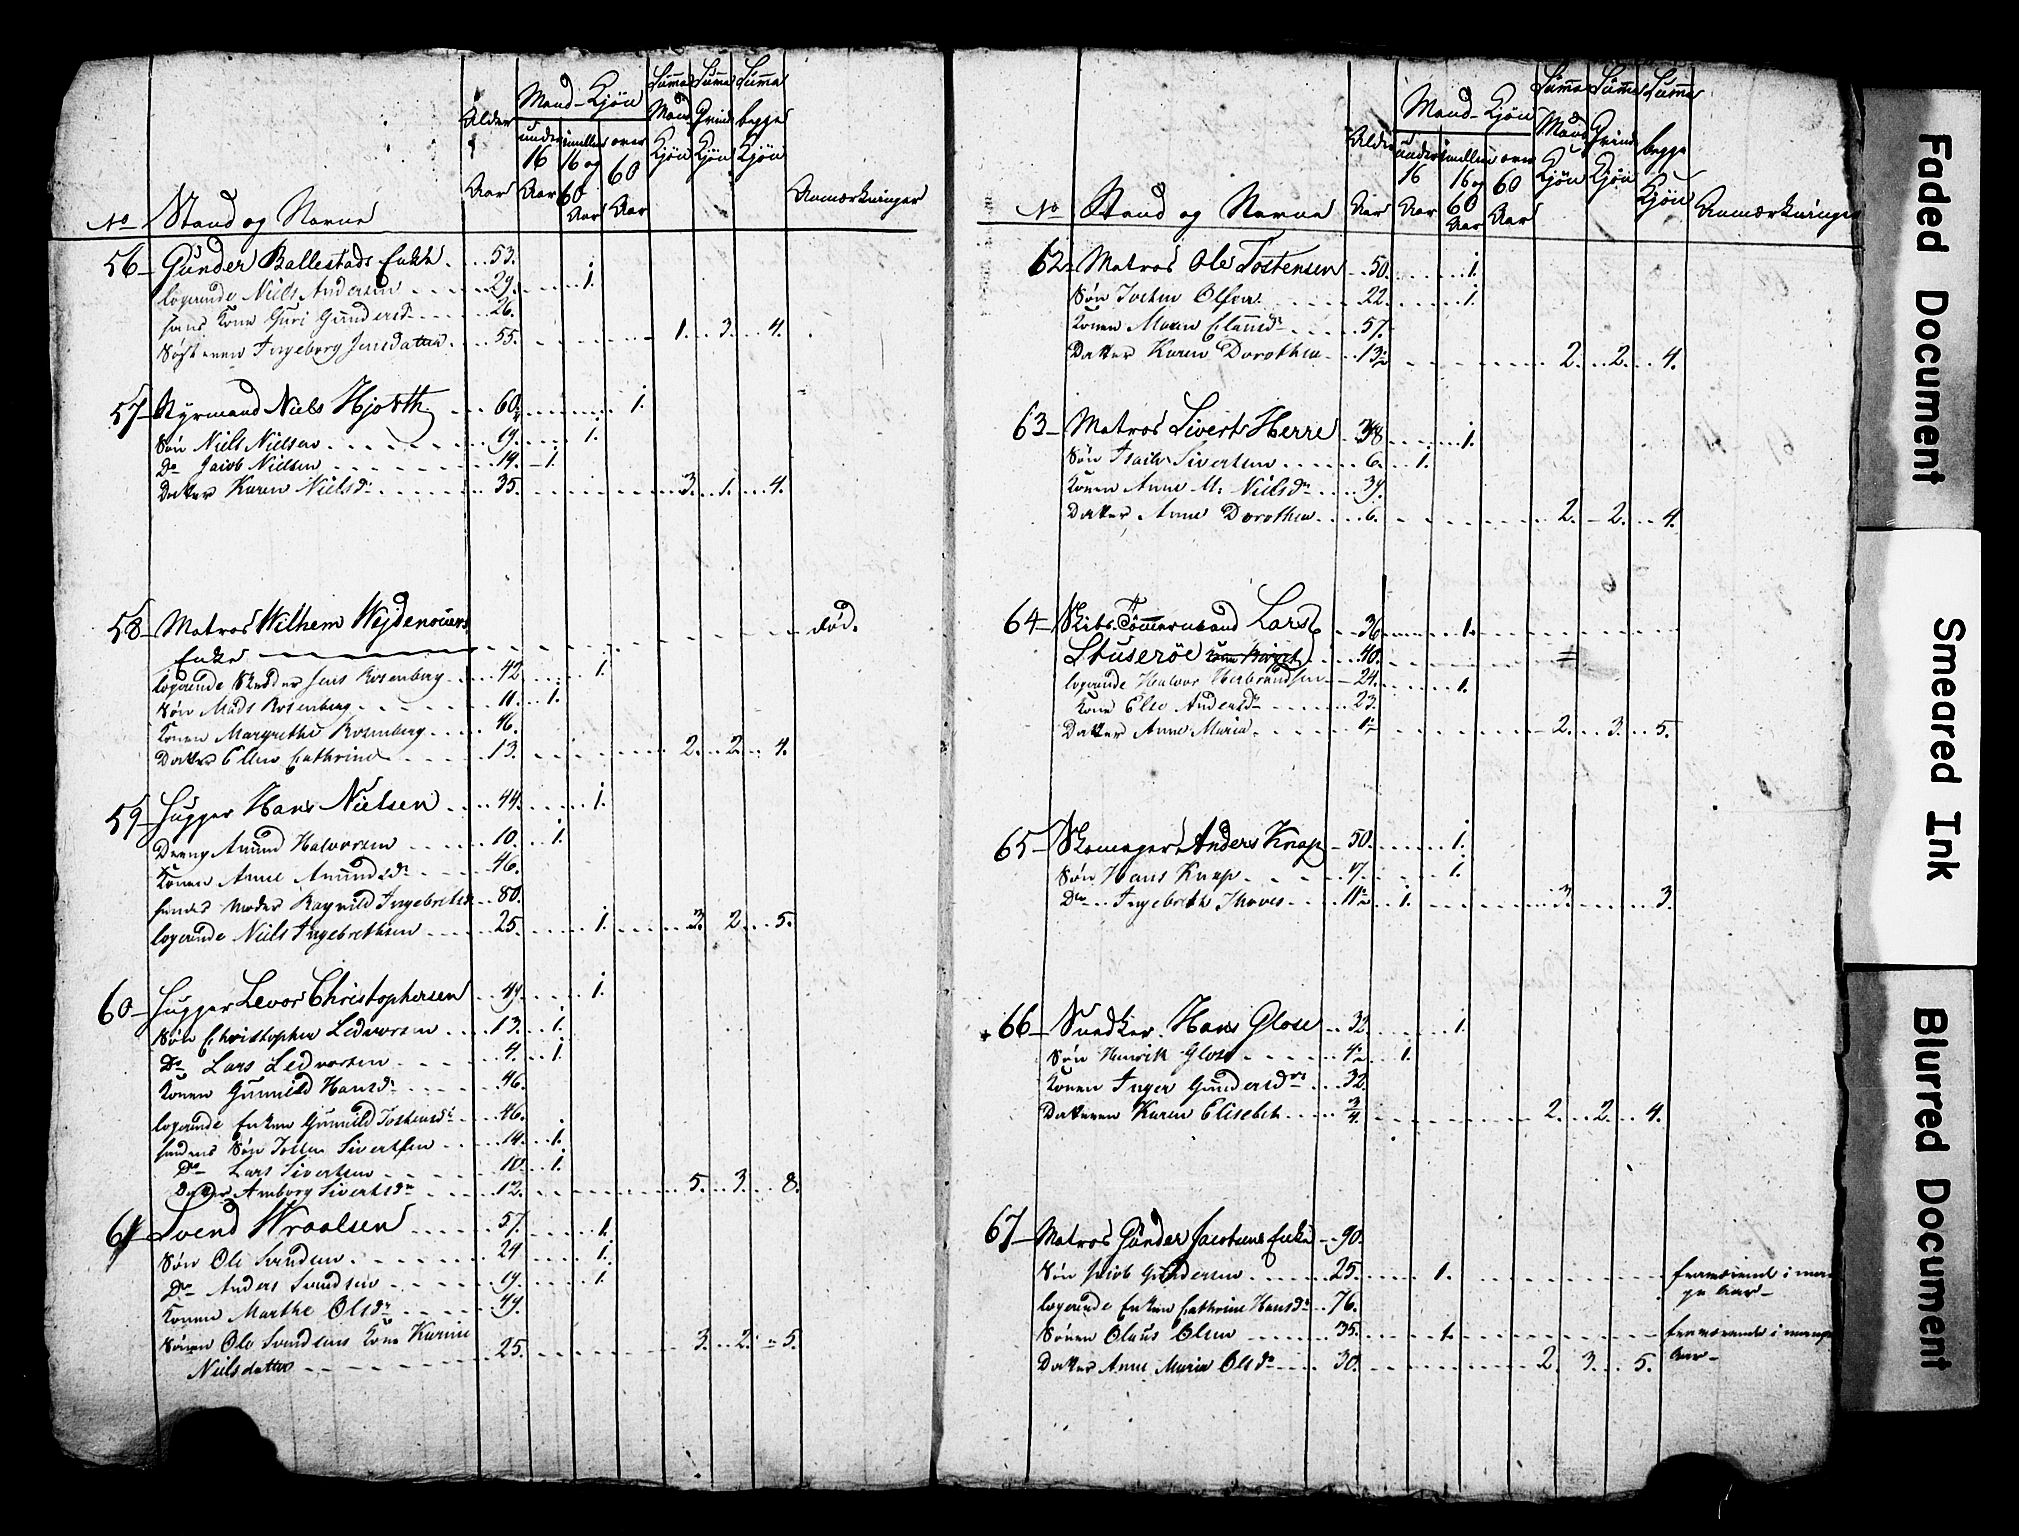 No Stand og Navne Alder Aar Mand-Kjön under 16 Aar imellem 16 og 60 Aar over 60 Aar Summa Mand Kjön Summa Qvind Kjön Summa begge Kjön Anmærkninger
56 Gunder Ballestads Enke 53.
logerende Niels Andersen 29. 1.
hans Kone Guri Gundersd. 26.
Søsteren Ingeborg Jensdatter 55. 1. 3. 4.
57 Styrmand Niels Hjorth 60 1.
Søn Niels Nielsen 19. 1.
Do Jacob Nielsen 14. 1.
Datter Karen Nielsdr 35. 3. 1. 4.
58 Matros Wilhem Wejdenouers død.
Enke
logerende Skrædder Jens Rosenberg 42 1.
Søn Mads Rosenberg 11. 1.
Konen Margrethe Rosenberg 46.
Datter Ellen Cathrine 13. 2. 2. 4.
59 Hugger Hans Nielsen 44. 1.
Dreng Anund Halvorsen 10. 1.
Konen Anne Anundsdr 46.
hendes Moder Ragnild Ingebretsd. 80.
logerende Niels Ingebrethsen 25. 1. 3. 2. 5.
60 Hugger Levor Christophersen 49. 1.
Søn Christopher Ledvorsen 13. 1.
Do Lars Ledvorsen 4. 1.
Konen Gunnild Hansdr 46.
logerende Enken Gunnild Tostensdr 46.
hendes Søn Tosten Sivertsen 14. 1.
Do Lars Sivertsen 10. 1.
Datter Amborg Sivertsdr 12. 5. 3. 8.
61 Svend Wraalsen 57. 1.
Søn Ole Svendsen 24 1.
Do Anders Svendsen 19. 1.
Konen Marthe Olsdr 49.
Sönen Ole Svendsens Kone Karine
Nielsdatter 25. 3. 2. 5.
No Stand og Navne Alder Aar Mand-Kjön under 16 Aar imellem 16 og 60 Aar over 60 Aar Summa Mand Kjön Summa Qvinde Kjön Summa begge Kjön Anmærkninger
62 Matros Ole Tostensen 50. 1.
Søn Josten Olsen 22. 1.
Konen Maren Clausdr 57.
Datter Karen Dorothea 13 2. 2. 4.
63 Matros Siverts Herre 38 1.
Søn Isach Sivertsen 6. 1.
Konen Anne M: Nielsdr 39.
Datter Anne Dorothea 6. 2. 2. 4.
64 Skibs Tömmermand Lars 36 1.
Stuseröe 40.
logerende Halvor Herbrandsen 24. 1.
Kone Else Andersdr 23.
Datter Anne Maria 1 2. 3. 5.
65 Skomager Anders Knap 50. 1.
Søn Hans Knap 17. 1.
Do Ingebreth Thoves 11 1. 3. 3.
66 Snedker Hans Glose 32 1.
Søn Henrik Glose 4 1.
Konen Inger Gundersdr 32
Datteren Karen Elisebet 3/4 2. 2. 4.
67 Matros Gunder Jacobsens Enke 90.
Søn Jacob Gundersen 25. 1. fraværende i man
ge Aar
logerende Enken Cathrine Hansdr 76.
Sönen Olaus Olsen 35. 1. fraværende i mange
Aar
Datter Anne Maria Olsdr 30. 2. 3. 5.
Faded Document
Smeared Ink
Blurred Document